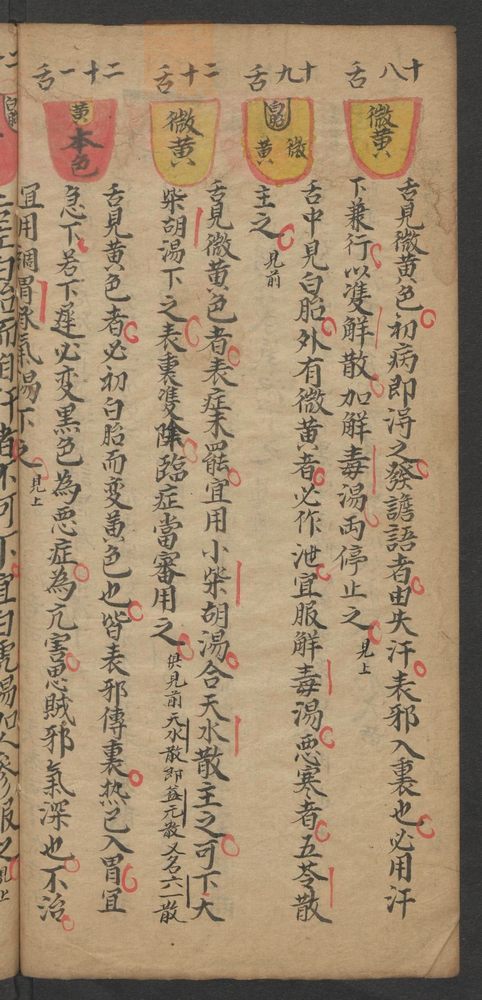 十八舌
微黄
舌見微黄色初病即淂之發譫語者由失汗表邪入裏也必用汗
下兼行以䨇解散加解毒湯両停止之見上
十九舌
白胎
微黄
舌中見白胎外有微黄者必作泄宜服解毒湯惡寒者五苓散
主之見前
二十舌
微黄
舌見微黄色者表症未罷宜用小柴胡湯合天水散主之可下大
柴胡湯下之表裏䨇除臨症當審用之俱見前天水散即益元散又名六一散
二十一舌
黄本色
舌見黄色者必初白胎而变黄色也皆表邪傳裏热已入胃宜
急下若下遲必变黒色為悪症為亢害鬼賊邪氣深也不治
宜用調胃承氣湯下之見上
舌左白胎而自汗者不可下宜白虎湯加人參服之見上